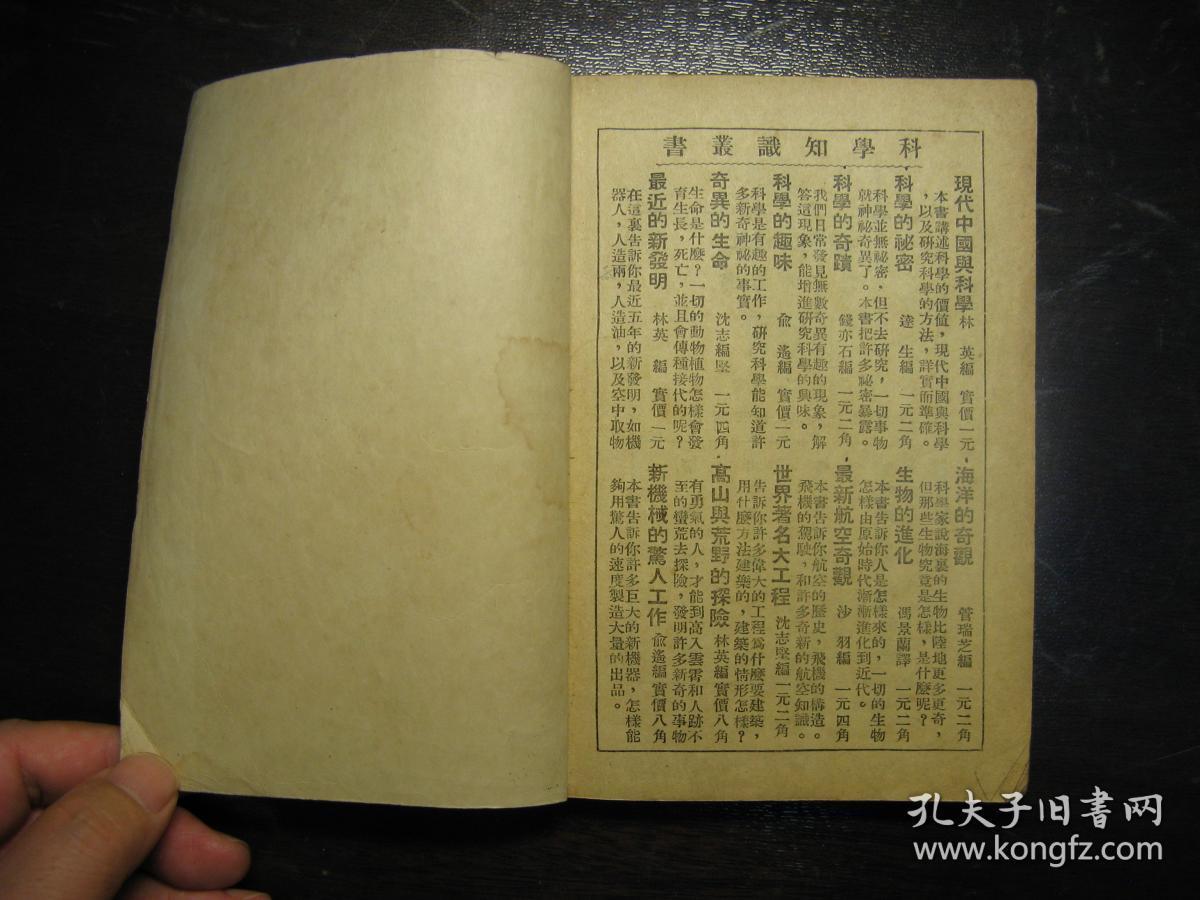 科學知識叢書
現代中國與科學　林　英編　實價一元
本書講述科學的價值，現代中國與科學
，以及研究科學的方法，詳實而準確。
科學的祕密　逵　生編　一元二角
科學並無祕密，但不去研究，一切事物
就神祕奇異了。本書把許多祕密暴露。
科學的奇蹟　錢亦石編　一元二角
我們日常發見無數奇異有趣的現象，解
答這現象，能增進研究科學的興味。
科學的趣味　俞　遙編　實價一元
科學是有趣的工作，研究科學能知道許
多新奇神祕的事實。
奇異的生命　沈志堅編　一元四角
生命是什麼？一切的動物植物怎樣會發
育生長，死亡，並且會傳種接代的呢？
最近的新發明　林英　編　實價一元
在這裏告訴你最近五年的新發明，如機
器人，人造雨，人造油，以及空中取物
海洋的奇觀　管瑞芝編　一元二角
科學家說海裏的生物比陸地更多更奇，
但那些生物究竟是怎樣，是什麼呢？
生物的進化　馮景蘭譯　一元二角
本書告訴你人是怎樣來的，一切的生物
怎樣由原始時代漸漸進化到近代。
最新航空奇觀　沙　羽編　一元四
本書告訴你航空的歷史，飛機的構造。
飛機的駕駛，和許多奇新的航空知識。
世界著名大工程　沈志堅編一元二角
告訴你許多偉大的工程爲什麼要建築，
用什麼方法建築的，建築的情形怎樣？
高山與荒野的探險　林英編實價八角
有勇氣的人，才能到高入雲霄和人跡不
至的蠻荒去探險，發明許多新奇的事物
新機械的驚人工作　俞遙編實價八角
本書告訴你許多巨大的新機器，怎樣能
夠用驚人的速度製造大量的出品。
孔夫子旧書网
www.kongfz.com